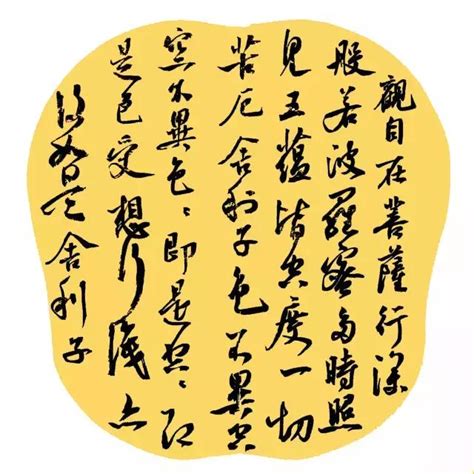 觀自在菩薩行深
般若波羅蜜多時照
見五蘊皆空度一切
苦厄舍利子色不異空
空不異色〻即是空〻即
是色受想行識亦
復如是舍利子